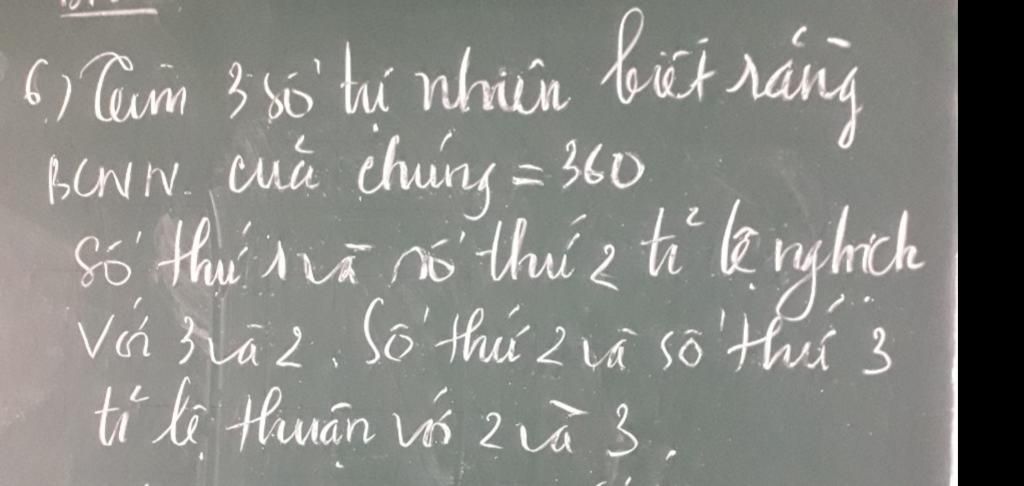 6) Tìm 3 số tự nhiên biết rằng
BCNN của chúng = 360
Số thứ 1 và số thứ 2 tỉ lệ nghịch
với 3 và 2. Số thứ 2 và số thứ 3
tỉ lệ thuận với 2 và 3.